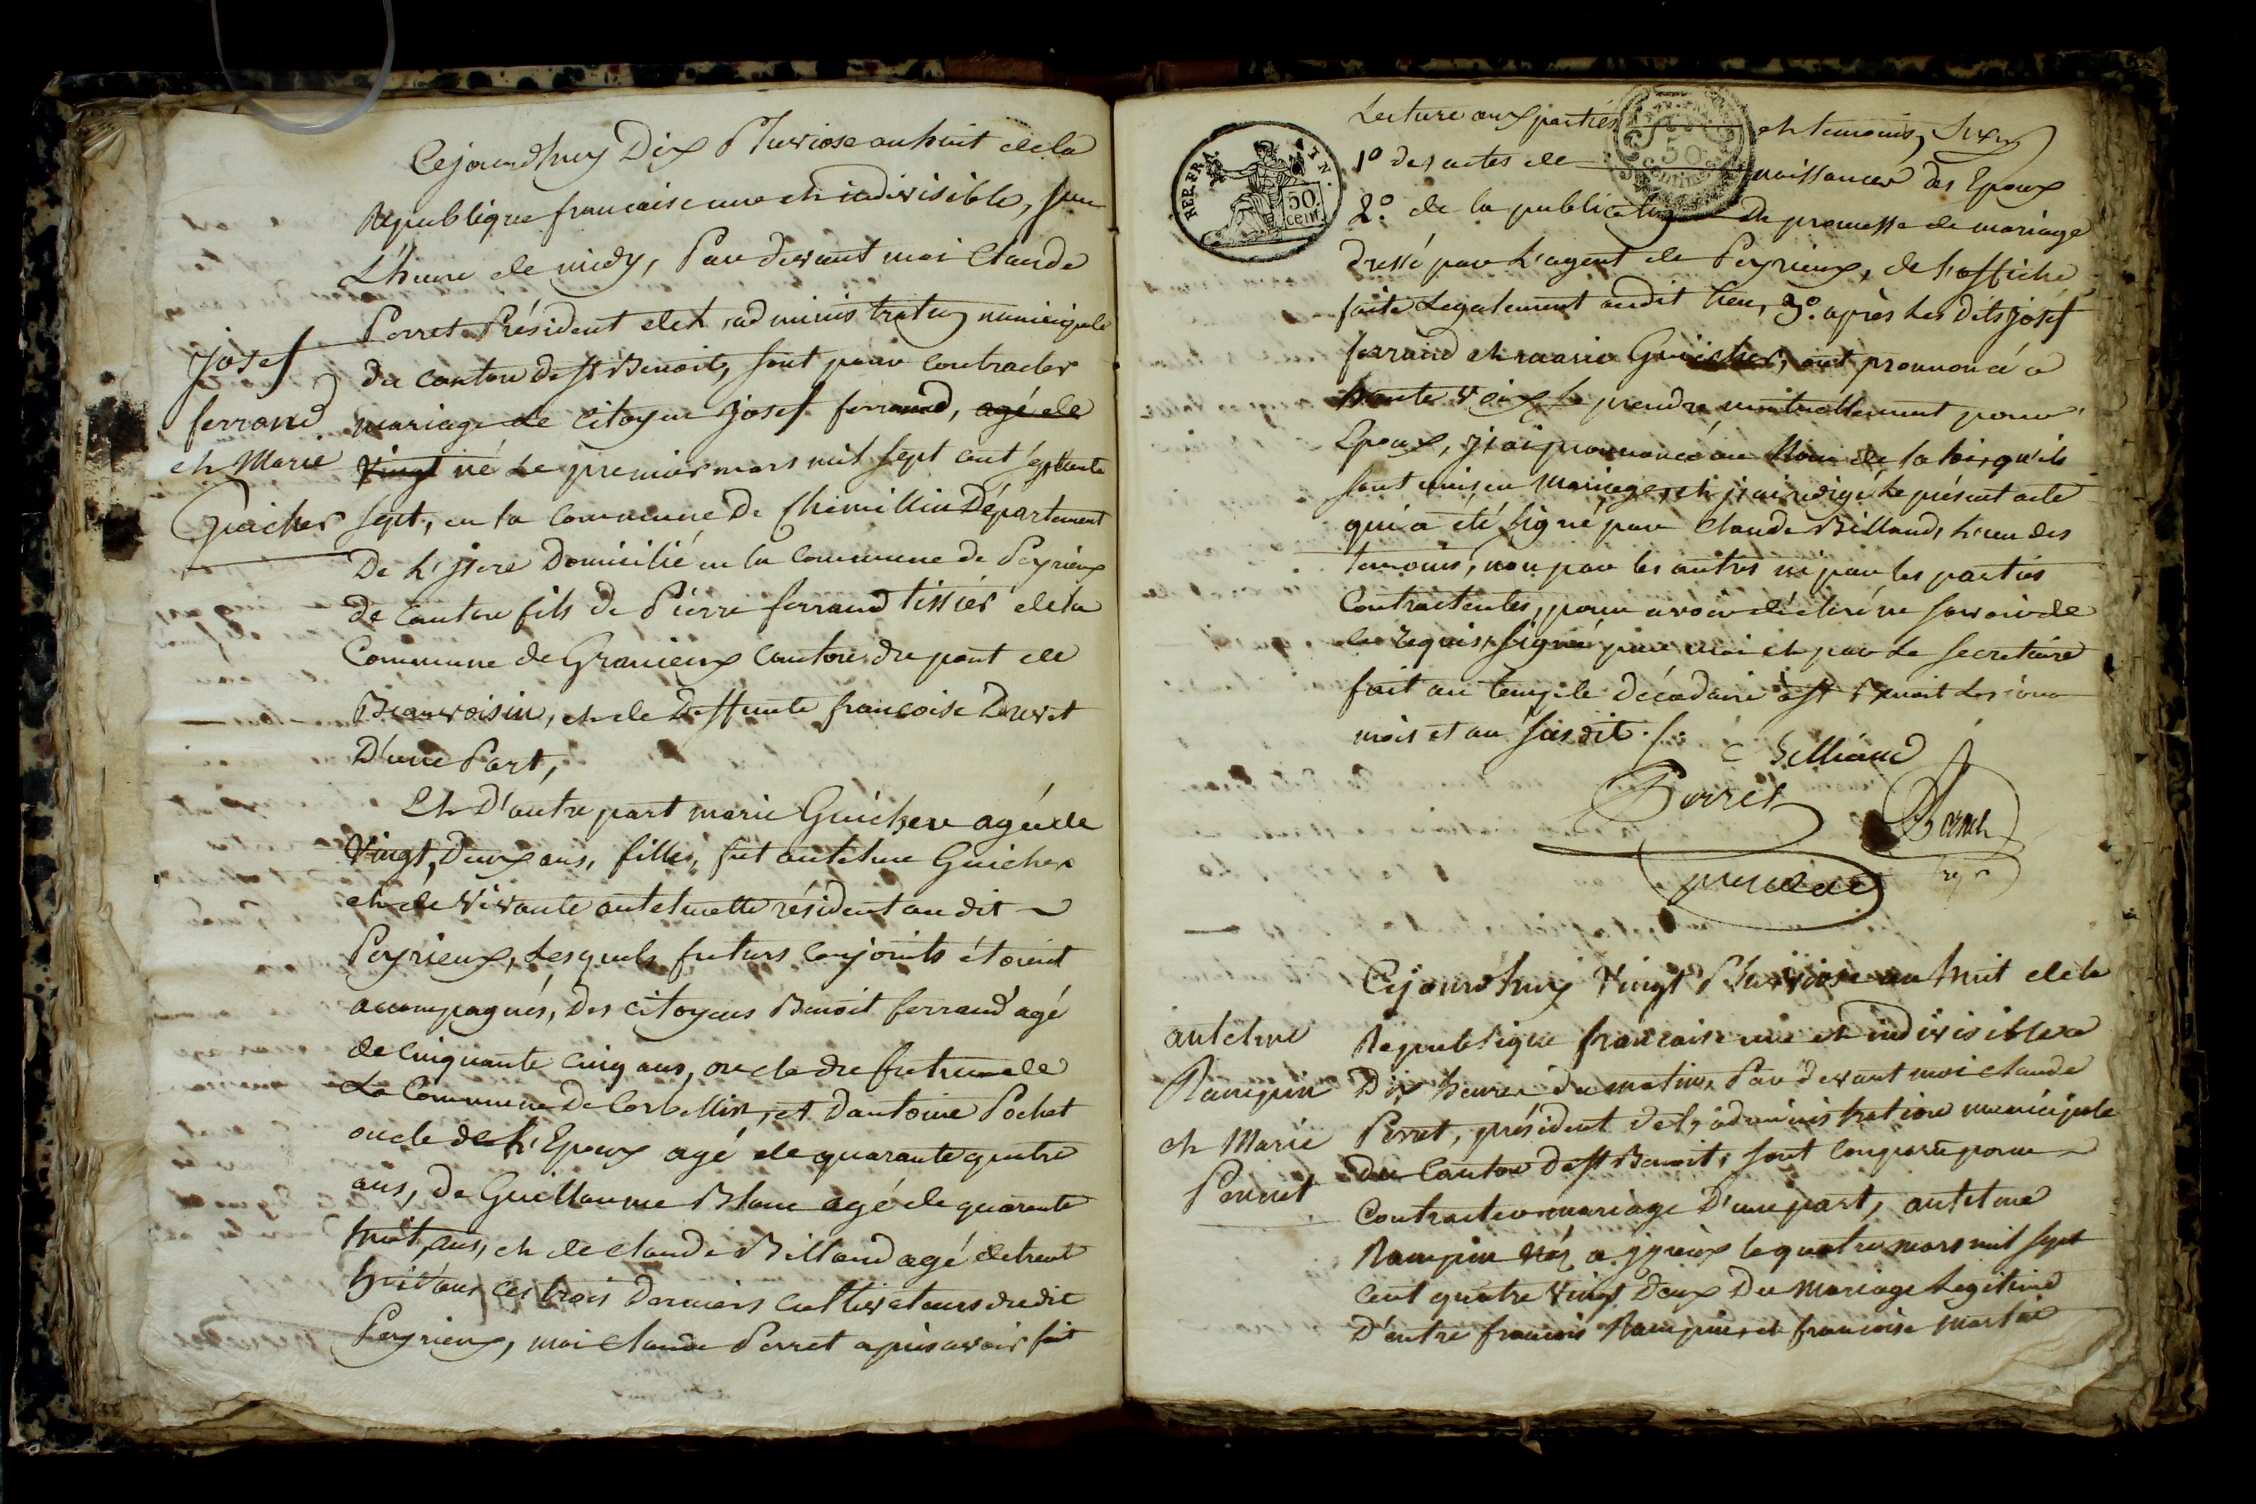 Cejourdhuy Dix Pluviose an huit de la
Republique francaise une et indivisible, sur
L'heure de midy, Par devant moi Claude
Perret Président de l'administration municipale
du canton de St Benoit, sont pour contracter
mariage le citoyen Josef ferrand, agé de
vingt né le premier mars mil sept cent septante
sept, en la commune de Chimillin Département
De L'Isere Domicilié en la commune de Peyrieux
de canton fils de Pierre ferrand tissier de la
Commune de Granieux canton du pont de
Beauvoisin, et de Deffunte francoise Duvet
D'une Part,
Josef
ferrand
et Marie
Guicher
Et D'autre part marie Guicher agée de
Vingt Deux ans, fille, fut antelme Guicher
et de vivante antelmette résident au dit
Peyrieux, Lesquels futurs conjoints étoient
accompagnés, Des citoyens Benoit ferrand agé
de cinquante cinq ans, oncle du futur de
La Commune De Corbellin, et D'antoine Pochet
oncle de L'Epoux agé de quarante quatre
ans, De Guillaume Blanc agé de quarante
huit ans, et de claude Billand agé de trent
huit ans ces trois Derniers cultivateurs dudit
Peyrieux, moi claude Perret apres avoir fait
REP. FRA. AIN.
50 cent.
50
centimes
Lecture aux parties et temoins,
1º des actes de naissances des Epoux
2.º de la publication De promesse de mariage
Dressé par L'agent de Peyrieux, de L'affiche
faite Legalement audit lieu, 3.º après Les Dits Josef
ferrand et marie Guicher, ont prononcé a
haute voix se prendre mutuellement pour
Epoux, j'ai prononcé au Nom de la loi, qu'ils
sont unis en Mariage, et j'ai redigé Le présent acte
qui a été signé par Claude Billand, L'un des
temoins, non par les autres ni par les parties
Contractantes, pour avoir déclaré ne savoir de
ce requis, signé par moi et par Le secretaire
fait au temple Décadaire à St Benoit Les jour
mois et an susdit ./.
C billiand
Perret
president
antelme
Rampin
et Marie
Poncet
Cejourdhuy Vingt Pluviose an huit de la
Republique francaise une et indivisible a
Dix heures du matin, Par devant moi claude
Perret, président de l'administration municipale
du Canton de St Benoit, sont comparu pour
Contracter mariage D'une part, antelme
Rampin né a jzieux le quatre mars mil sept
cent quatre Vingt Deux Du Mariage Legitime
D'entre francois Rampin, et francoise martin